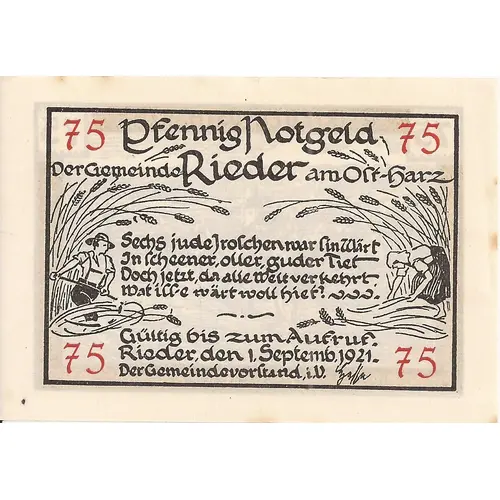 75 Pfennig Notgeld 75
Der Gemeinde Rieder am Ost-Harz
Sechs jude Jroschen war sin Wärt
In scheener, oller, guder Tiet
Doch jetzt, da alle Welt verkehrt
wat is se wärt woll hiet?
Gültig bis zum Aufruf.
75 Rieder, den 1. Septemb. 1921. 75
Der Gemeindevorstand, i.V.